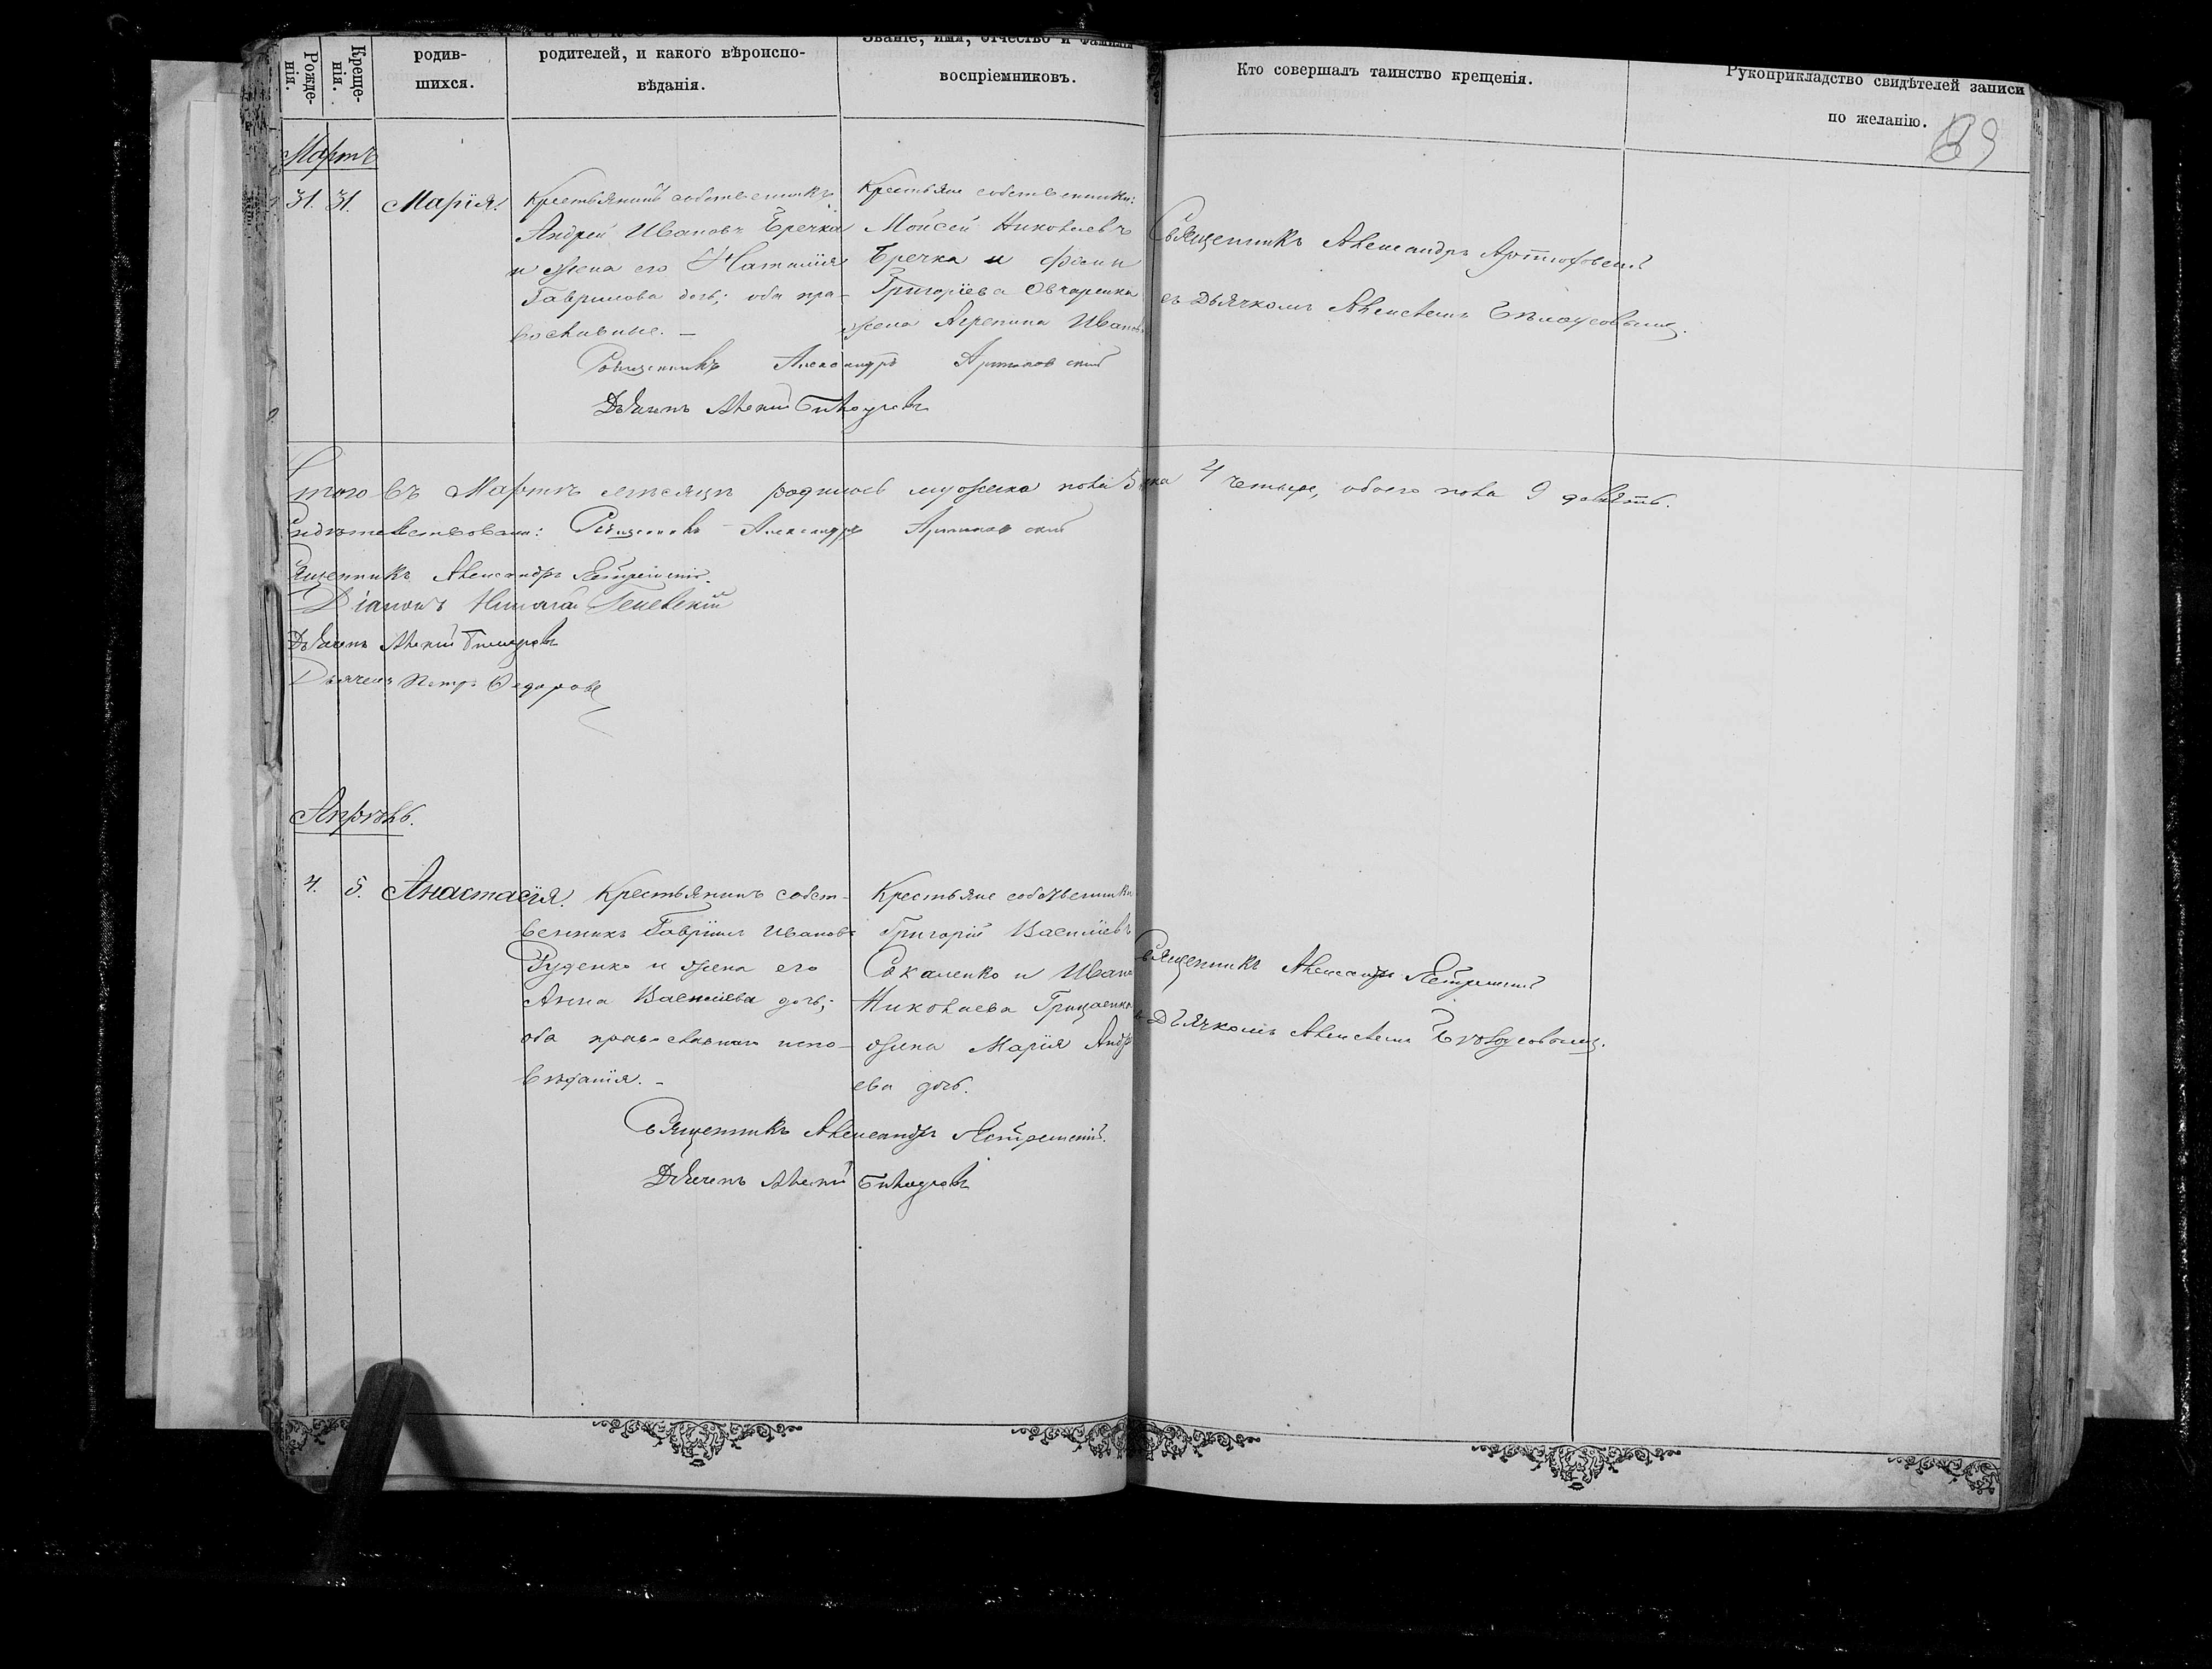 Рожде-
нія.
Креще-
нія.
родив-
шихся.
родителей, и какого вѣроиспо-
вѣданія.
Званіе, имя, отчество и фамилія
воспріемниковъ.
Кто совершалъ таинство крещенія.
Рукоприкладство свидѣтелей записи
по желанію.
Мартъ
31. 31. Марія.
Крестьянинъ собственникъ
Андрей Ивановъ Бречка
и жена его Наталія
Гаврилова дочь; оба пра-
вославные. –
Крестьяне собственники:
Моисей Николаевъ
Бречка и
Григоріева Овчаренка
жена Агрепина Иванов
Священникъ Александръ
съ Дьячкомъ Алексѣемъ Бѣлоусовымъ.
Священникъ Александръ
Дьячекъ Алексій Бѣлоусовъ
Итого въ Мартѣ мѣсяцѣ родилось мужеска пола 5
ска 4 четыре, обоего пола 9 девять.
Священникъ Александръ
Священникъ Александръ
Діаконъ Николай
Дьячекъ Алексій Бѣлоусовъ
Дьячекъ Петръ Федоровъ
Апрѣль.
4. 5. Анастасія.
Крестьянинъ собст-
венникъ Гавріилъ Ивановъ
Руденко и жена его
Анна Васильева дочь;
оба православнаго испо-
вѣданія. –
Крестьяне собственники
Григорій Васильевъ
Сокаленко и Ивана
Николаева Грицаенка
жена Марія Андр
ева дочь.
Священникъ Александръ
съ Дьячкомъ Алексѣемъ Бѣлоусовымъ.
Священникъ Александръ
Дьячекъ Алексій Бѣлоусовъ